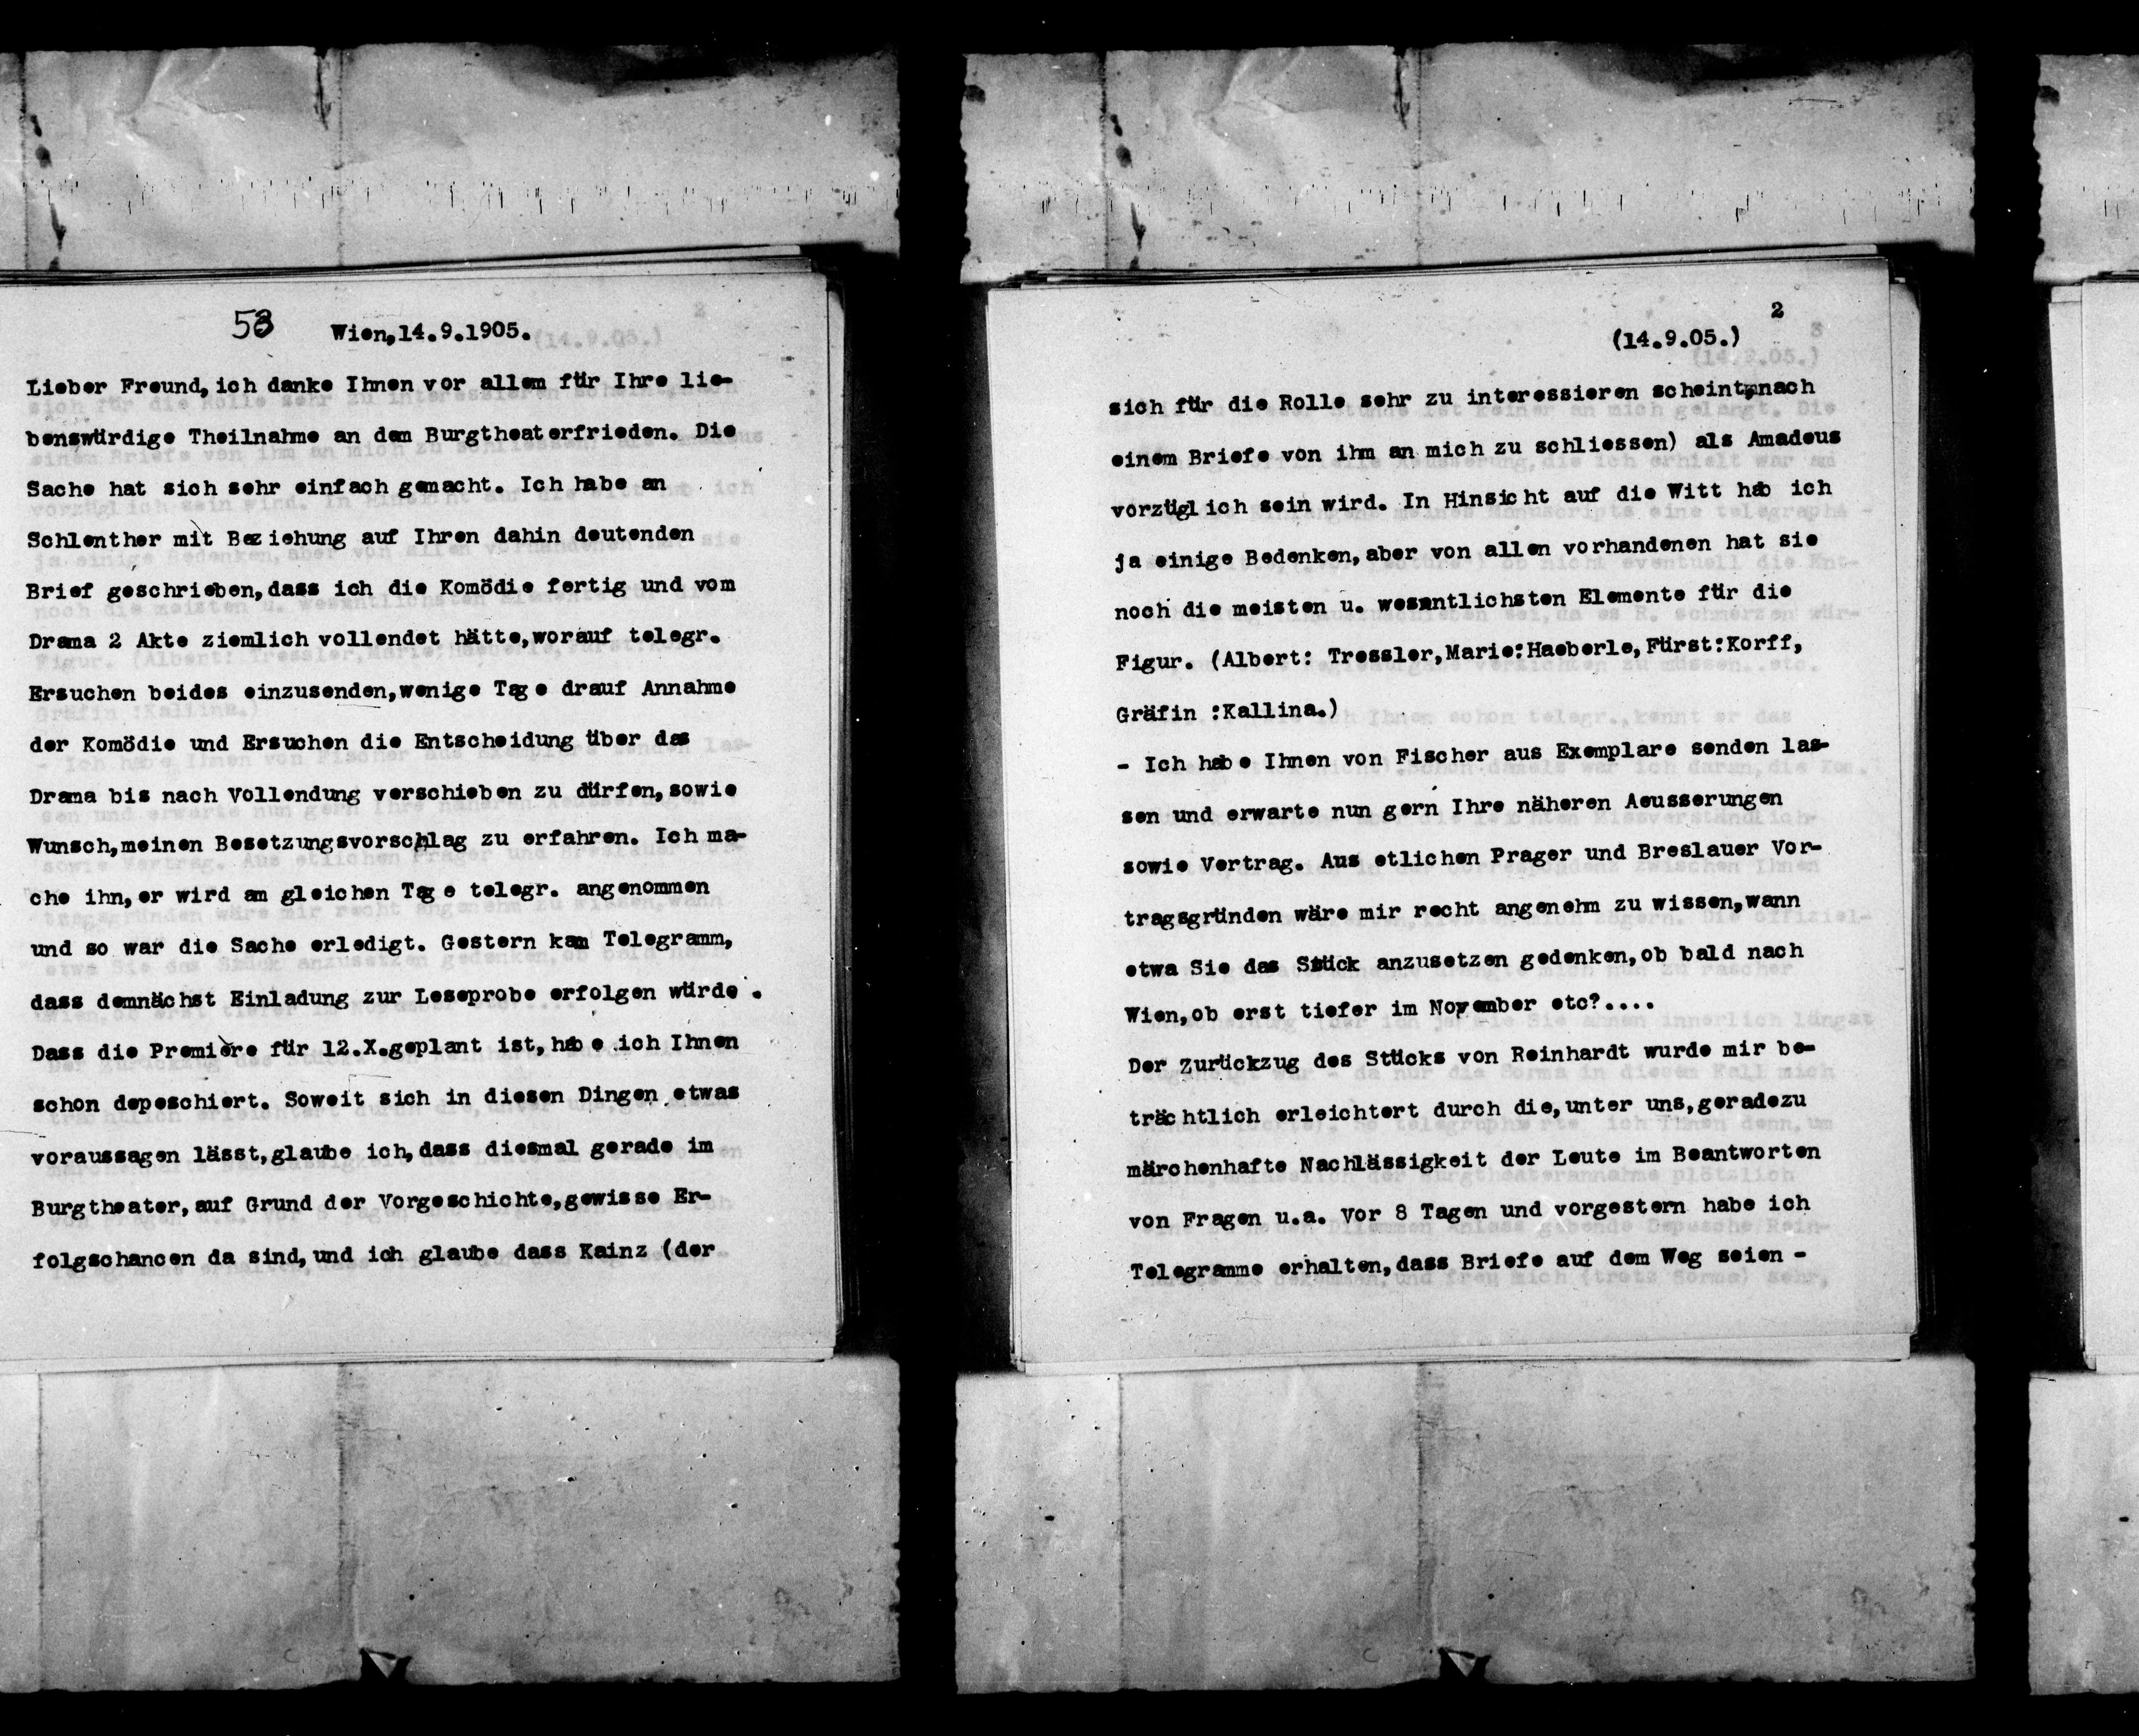 53 Wien,14.9.1905.
Lieber Freund,ich danke Ihnen vor allem für Ihre lie-
benswürdige Theilnahme an dem Burgtheaterfrieden. Die
Sache hat sich sehr einfach gemacht. Ich habe an
Schlenther mit Beziehung auf Ihren dahin deutenden
Brief geschrieben,dass ich die Komödie fertig und vom
Drama 2 Akte ziemlich vollendet hätte,worauf telegr.
Ersuchen beides einzusenden,wenige Tage drauf Annahme
der Komödie und Ersuchen die Entscheidung über das
Drama bis nach Vollendung verschieben zu dürfen,sowie
Wunsch,meinen Besetzungsvorschlag zu erfahren. Ich ma-
che ihn,er wird am gleichen Tage telegr. angenommen
und so war die Sache erledigt. Gestern kam Telegramm,
dass demnächst Einladung zur Leseprobe erfolgen würde.
Dass die Première für 12.X.geplant ist,habe ich Ihnen
schon depeschiert. Soweit sich in diesen Dingen etwas
voraussagen lässt,glaube ich,dass diesmal gerade im
Burgtheater,auf Grund der Vorgeschichte,gewisse Er-
folgschancen da sind,und ich glaube dass Kainz (der
2
(14.9.05.)
sich für die Rolle sehr zu interessieren scheint,nach
einem Briefe von ihm an mich zu schliessen) als Amadeus
vorzüglich sein wird. In Hinsicht auf die Witt hab ich
ja einige Bedenken,aber von allen vorhandenen hat sie
noch die meisten u. wesentlichsten Elemente für die
Figur. (Albert: Tressler,Marie:Haeberle,Fürst:Korff,
Gräfin :Kallina.)
- Ich habe Ihnen von Fischer aus Exemplare senden las-
sen und erwarte nun gern Ihre näheren Aeusserungen
sowie Vertrag. Aus etlichen Prager und Breslauer Vor-
tragsgründen wäre mir recht angenehm zu wissen,wann
etwa Sie das Stück anzusetzen gedenken,ob bald nach
Wien,ob erst tiefer im November etc?....
Der Zurückzug des Stücks von Reinhardt wurde mir be-
trächtlich erleichtert durch die,unter uns,geradezu
märchenhafte Nachlässigkeit der Leute im Beantworten
von Fragen u.a. Vor 8 Tagen und vorgestern habe ich
Telegramme erhalten,dass Briefe auf dem Weg seien -